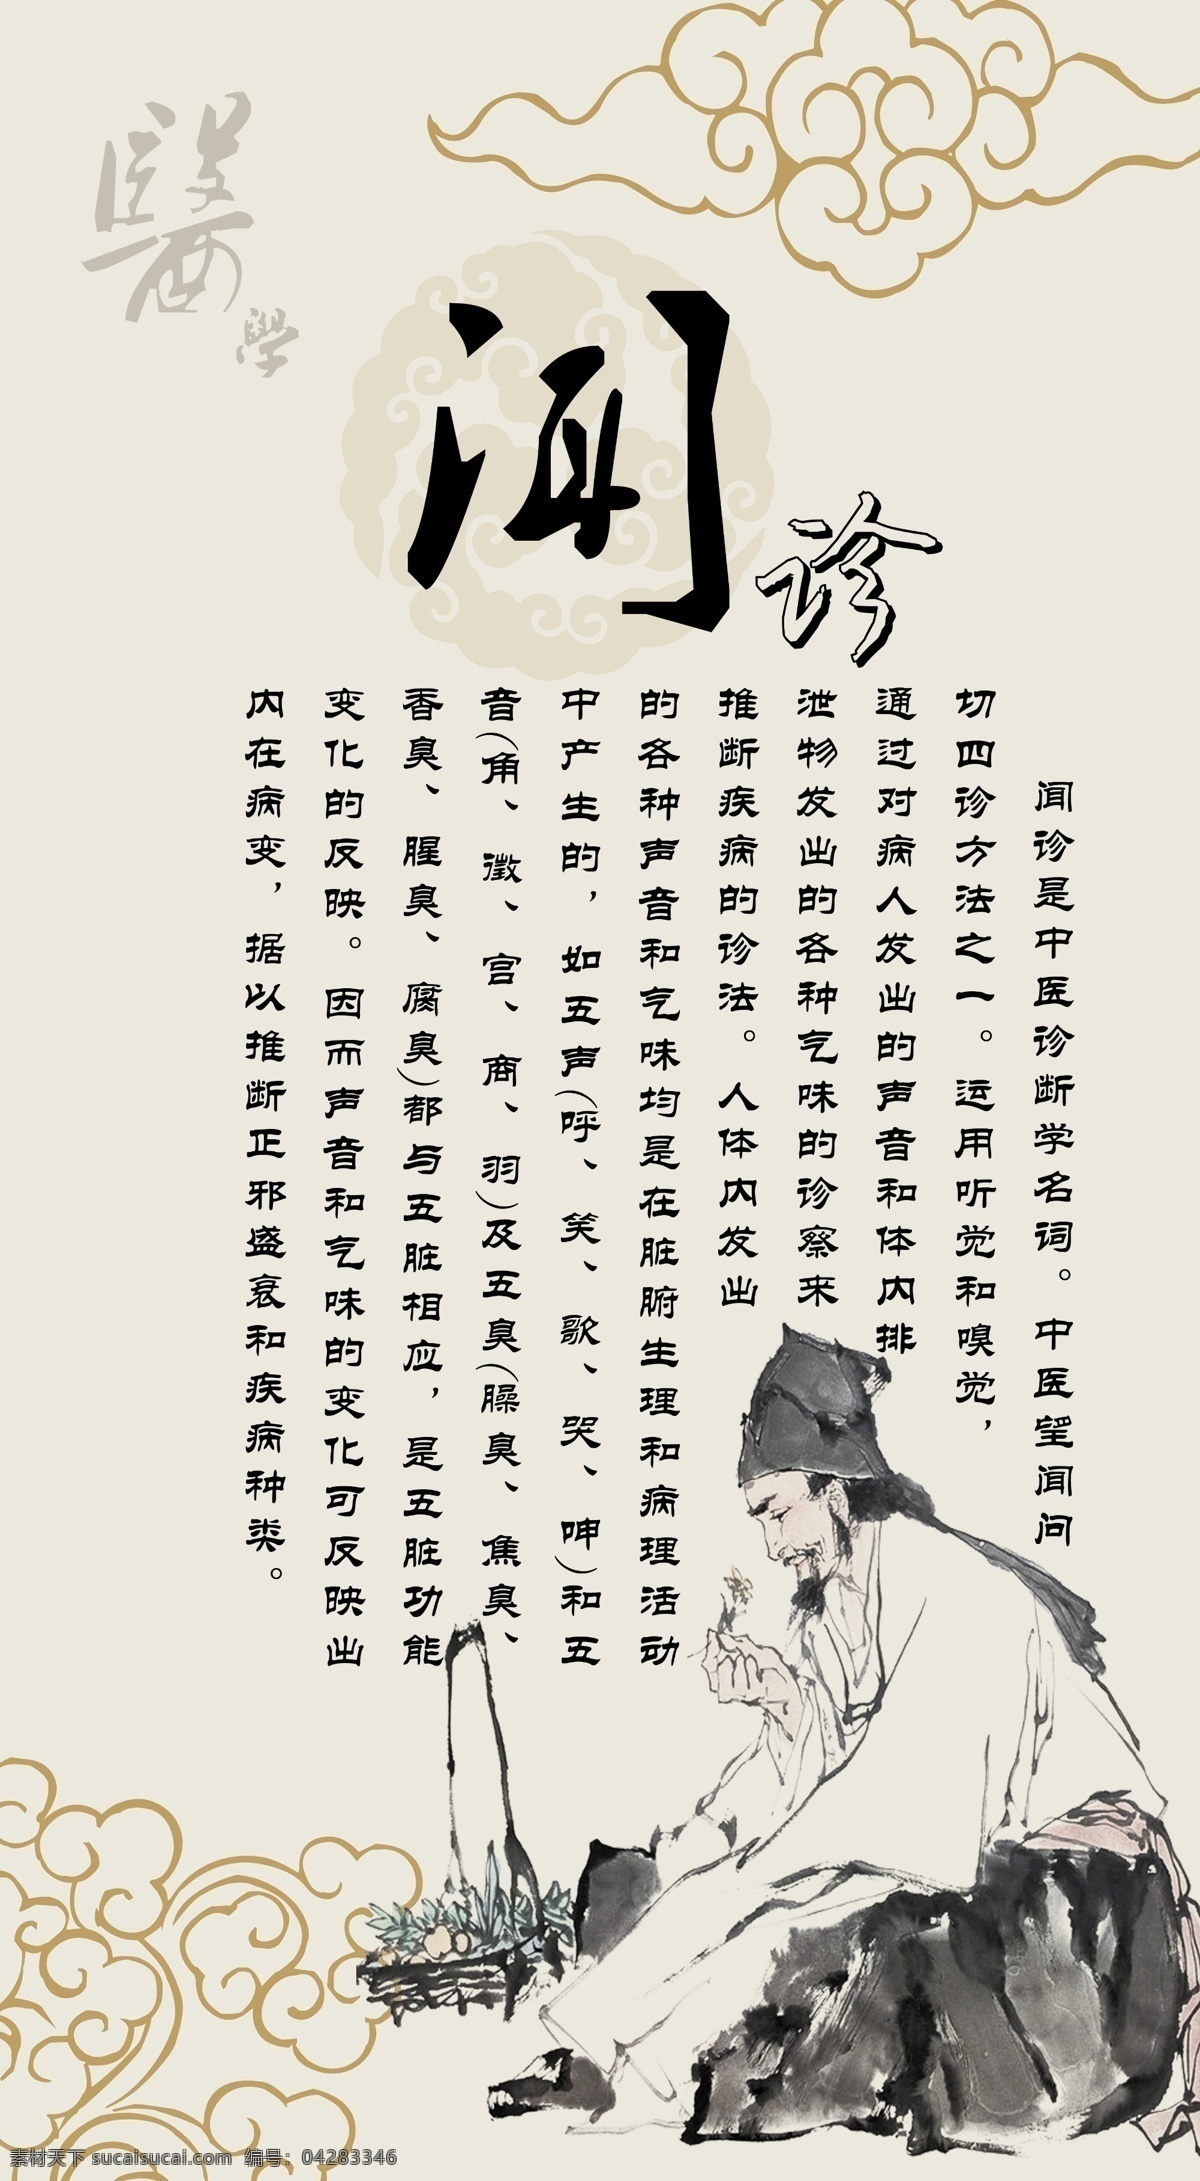 醫
學
闻
诊
闻诊是中医诊断学名词。中医望闻问
切四诊方法之一。运用听觉和嗅觉，
通过对病人发出的声音和体内排
泄物发出的各种气味的诊察来
推断疾病的诊法。人体内发出
的各种声音和气味均是在脏腑生理和病理活动
中产生的，如五声(呼、笑、歌、哭、呻)和五
音(角、徵、宫、商、羽)及五臭(臊臭、焦臭、
香臭、腥臭、腐臭)都与五脏相应，是五脏功能
变化的反映。因而声音和气味的变化可反映出
内在病变，据以推断正邪盛衰和疾病种类。
素材天下 sucaisucai.com 编号：04283346